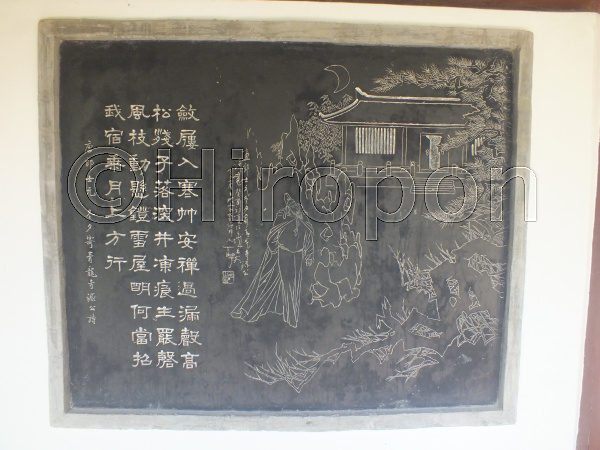 斂屨入寒竹安禪過漏聲高
松殘子落深井凍痕生罷磬
風枝動懸鐙雪屋明何當招
我宿乘月上方行
唐郎士元冬夕寄青龍寺源公詩
©Hiropon